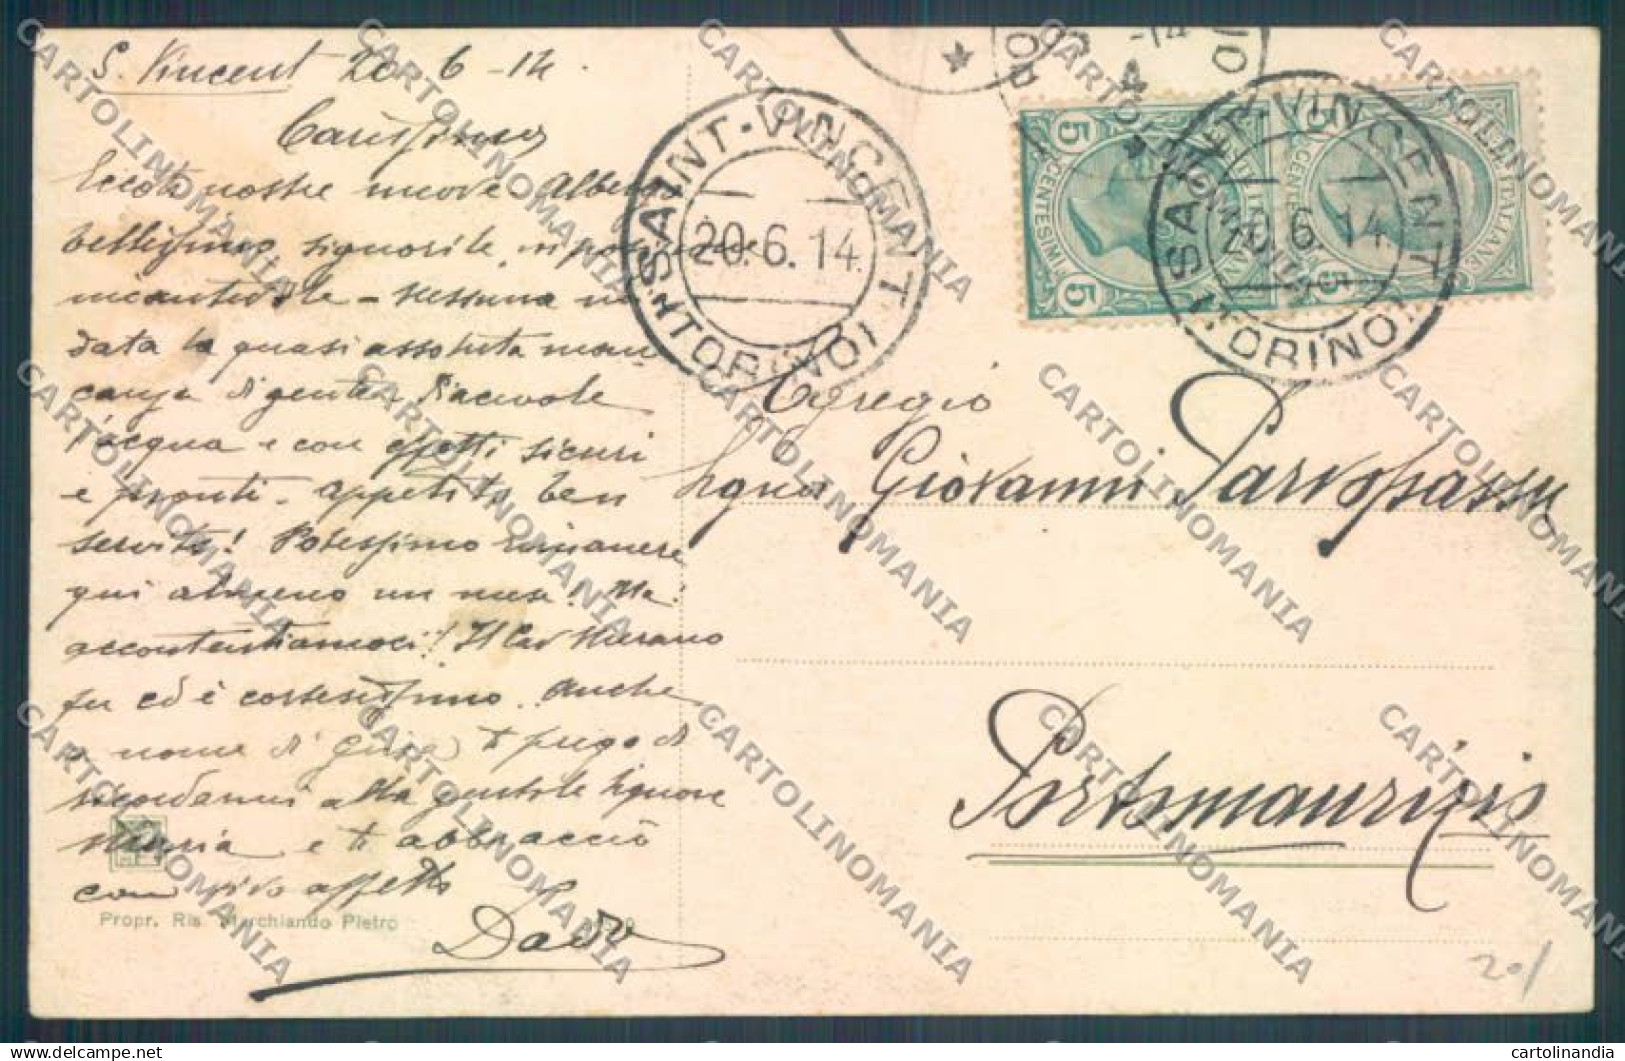 S. Vincent 20-6-14.
Carissimo
Eccoti nostro nuovo Albergo
bellissimo, signorile, in posizione
incantevole - Nessuna no
data la quasi assoluta man
canza di gente. Piacevole
l'acqua e con effetti sicuri
e pronti. appetito ben
servito! Potessimo rimanere
qui almeno un mese! Ma!
accontentiamoci! Il Cav Murano
fu ed è cortesissimo. Anche
a nome di ti prego di
ricordarmi alla gentile Signora
Maria e ti abbraccio
con vivo affetto
Propr. Ris Marchiando Pietro
SAINT-VINCENT
20.6.14.
(TORINO)
5 CENTESIMI 5
POSTE ITALIANE
SAINT-VINCENT
20.6.14
(TORINO)
Egregio
Giovanni
Portomaurizio
20/
CARTOLINOMANIA
cartolinomania.it
cartolinandia